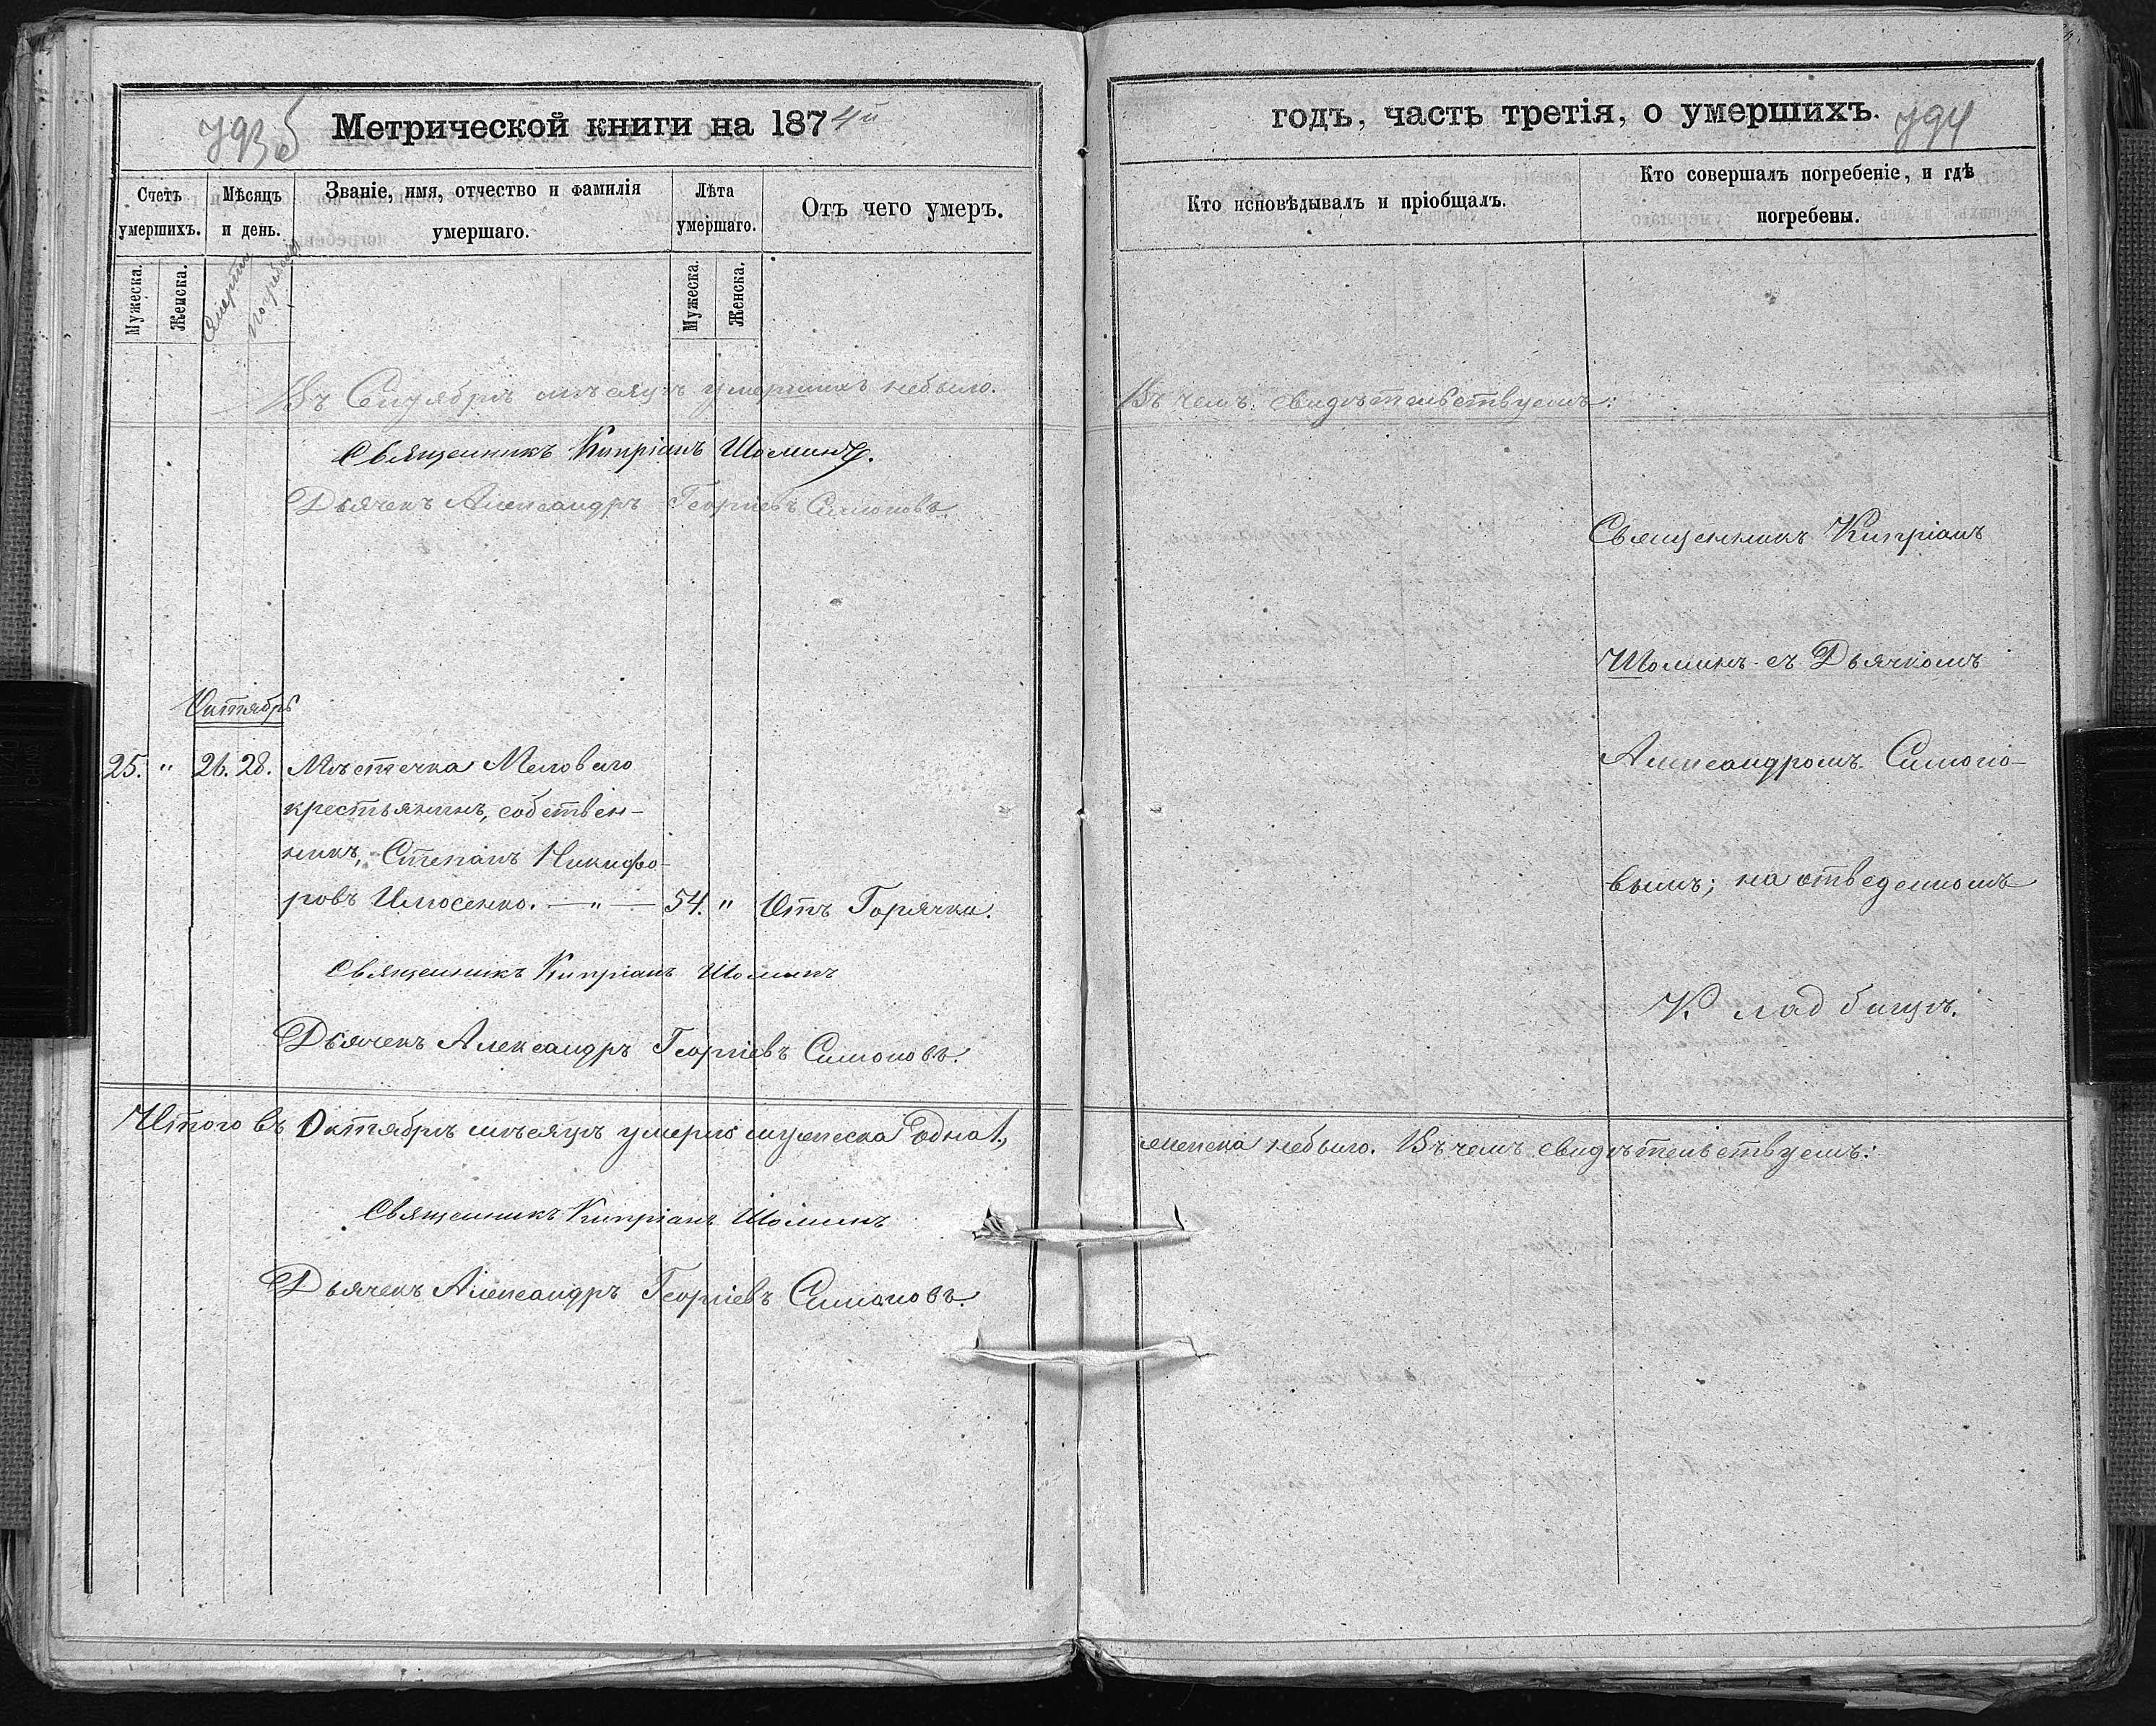 793 б
Метрической книги на 1874й
Счетъ умершихъ.
Мѣсяцъ и день.
Званіе, имя, отчество и фамилія умершаго.
Лѣта умершаго.
Отъ чего умеръ.
Мужеска.
Женска.
Смерти
погребенія
Мужеска.
Женска.
Въ Сентябрѣ мѣсяцѣ умершихъ небыло.
Священникъ Кипріанъ Шоминъ.
Дьячекъ Александръ Георгіевъ Симоновъ.
Октябрь
25. " 26. 28. Мѣстечка Меловаго
крестьянинъ, собствен-
никъ, Степанъ Никифо-
ровъ Илюсенко. — " — 54. " Отъ Горячки.
Священникъ Кипріанъ Шоминъ
Дьячекъ Александръ Георгіевъ Симоновъ.
Итого въ Октябрѣ мѣсяцѣ умерло мужеска одна 1.,
Священникъ Кипріанъ Шоминъ
Дьячекъ Александръ Георгіевъ Симоновъ.
годъ, часть третія, о умершихъ.
794
Кто исповѣдывалъ и пріобщалъ.
Кто совершалъ погребеніе, и гдѣ
погребены.
Въ чемъ свидѣтельствуемъ:
Священникъ Кипріанъ
Шоминъ съ Дьячкомъ
Александромъ Симоно-
вымъ; на отведенномъ
Кладбищѣ.
женска небыло. Въ чемъ свидѣтельствуемъ: